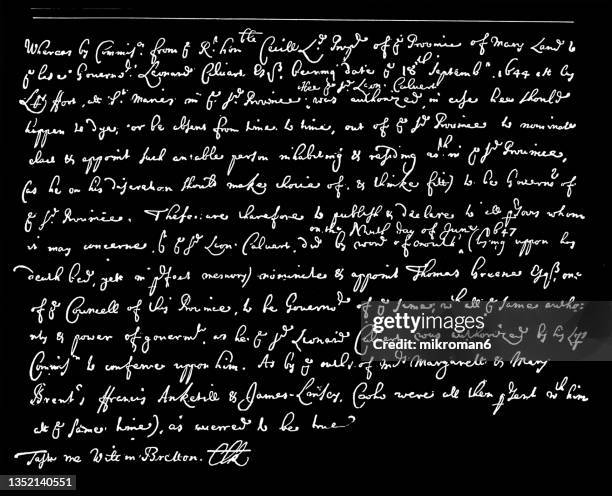 Whereas by Commiss: from ye Rt. honble Cecill Ld. Propr of ye Province of Mary Land to
ye late Governor: Leonard Calvert Esqr. bearing date ye 18th Septembr. 1644 at his
Lps ffort, at St. Maries in ye sd. Province; he ye sd Leon: Calvert was authorized, in case hee should
happen to dye, or be absent from time to time, out of ye sd. Province to nominate
elect & appoint such an able person inhabiting & residing wthin ye sd Province,
(as he on his discretion should make choice of, & thinke fitt) to be Governor of
ye sd. Province. These are therefore to publish & declare to all psons whom
it may concerne yt ye sd. Leon: Calvert, did by word of mouth on the Ninth day of June 1647 (lying uppon his
death bed, yett in pfect memory) nominate & appoint Thomas Greene Esqr. one
of ye Councell of this Province, to be Governor of ye same, wth all ye same autho
rity & power of governmt. as he ye sd Leonard Calvert was authorized by his Lps
Commiss: to conferre uppon him. As by ye oaths of Mrs Margarett & Mary
Brent, ffrancis Anketill & James Linsey, (who were all then psent wth him
at ye same time), as averred to be true
Teste me Willm Bretton. Clk
gettyimages
Credit: mikroman6
1352140551